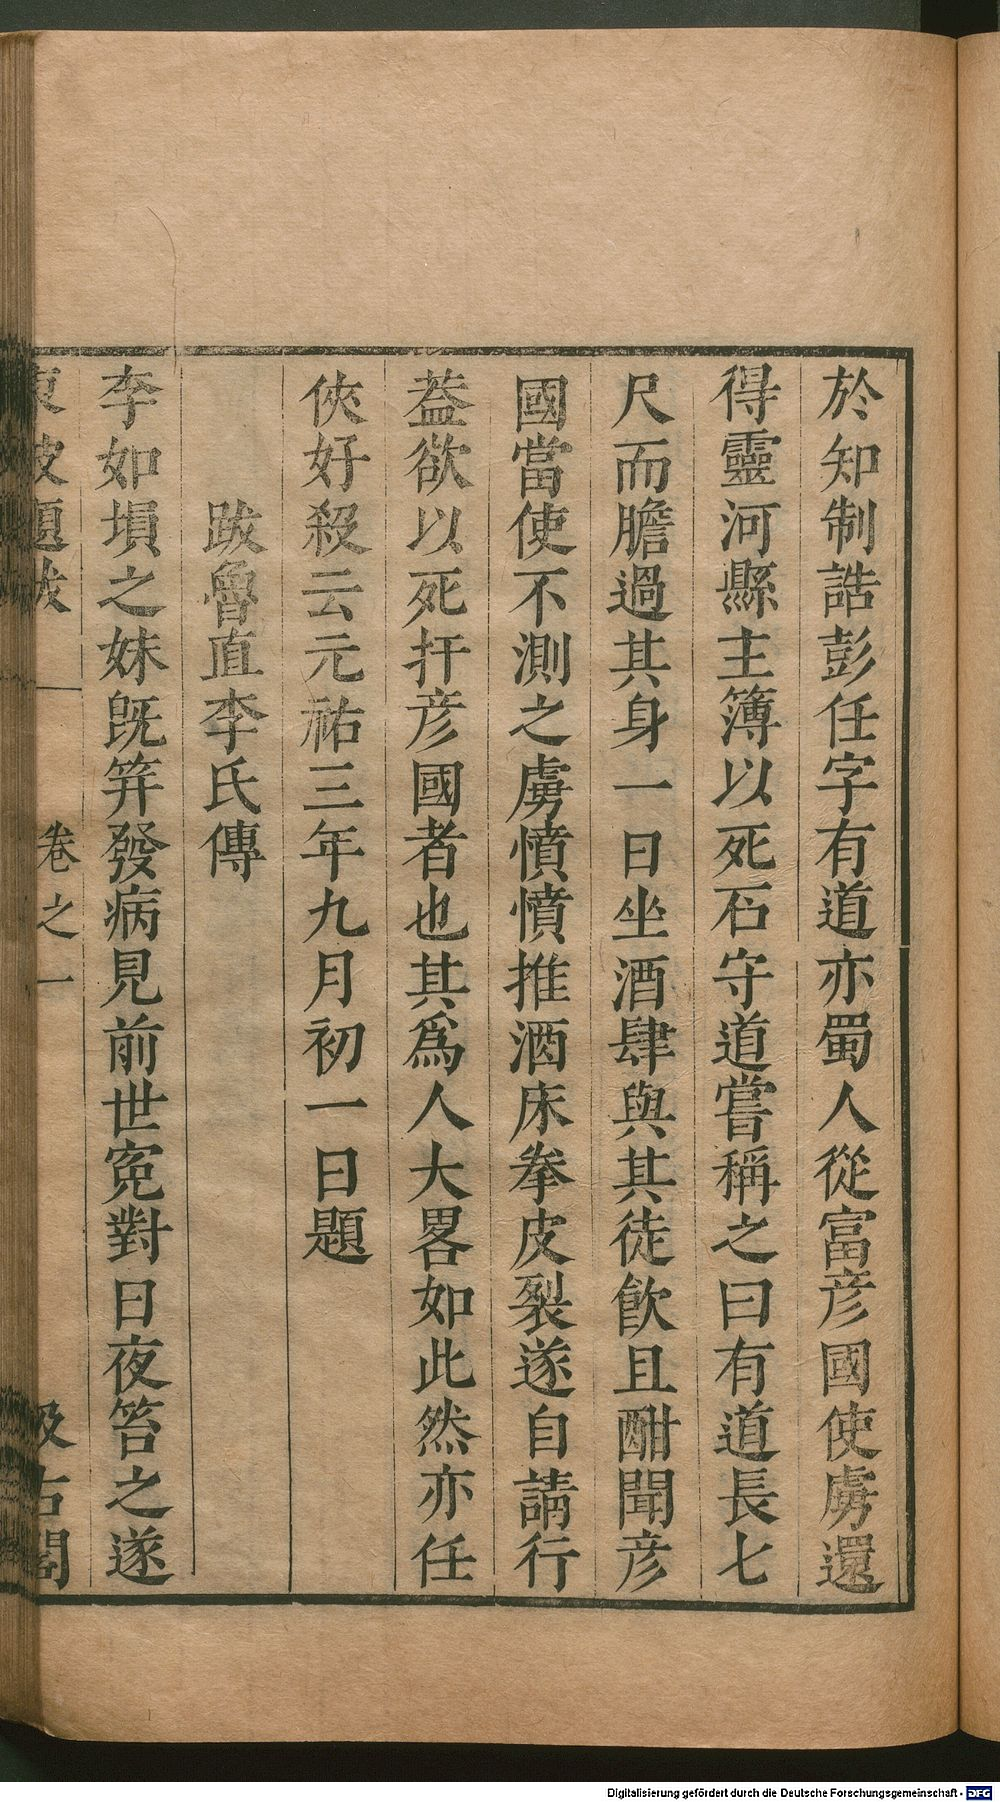 於知制誥彭任字有道亦蜀人從富彦國使虜還
得靈河縣主簿以死石守道嘗稱之曰有道長七
尺而膽過其身一日坐酒肆與其徒飲且酣聞彦
國當使不測之虜憤憤推酒床拳皮裂遂自請行
葢欲以死扞彦國者也其爲人大畧如此然亦任
俠好殺云元祐三年九月初一日題
跋魯直李氏傳
李如塤之妹旣笄發病見前世寃對日夜笞之遂
東坡題跋 卷之一 汲古閣
Digitalisierung gefördert durch die Deutsche Forschungsgemeinschaft - DFG